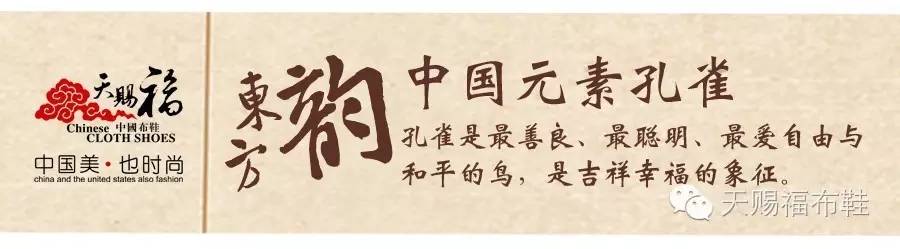 天赐福
Chinese 中國布鞋
CLOTH SHOES
中国美·也时尚
china and the united states also fashion
東方韵
中国元素孔雀
孔雀是最善良、最聪明、最爱自由与
和平的鸟，是吉祥幸福的象征。
天赐福布鞋